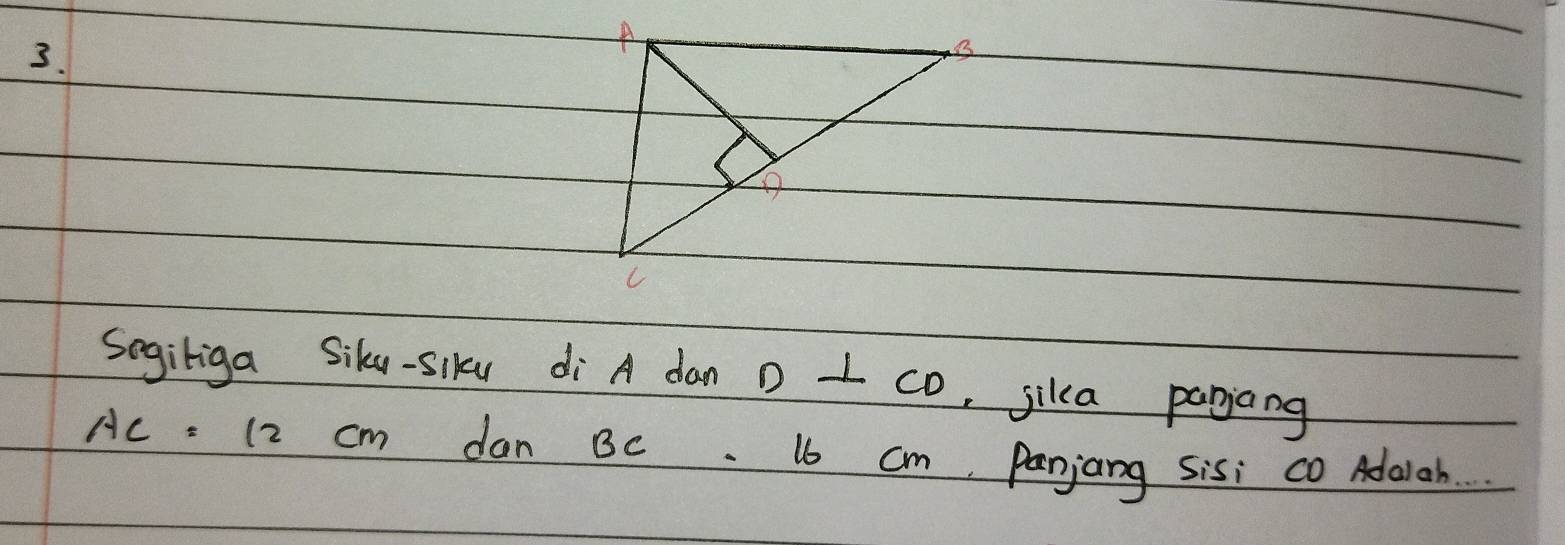 3.
A
B
D
C
Segitiga Siku-siku di A dan D ⊥ CD, jika panjang
AC = 12 cm dan BC = 16 cm. Panjang sisi CD Adalah....